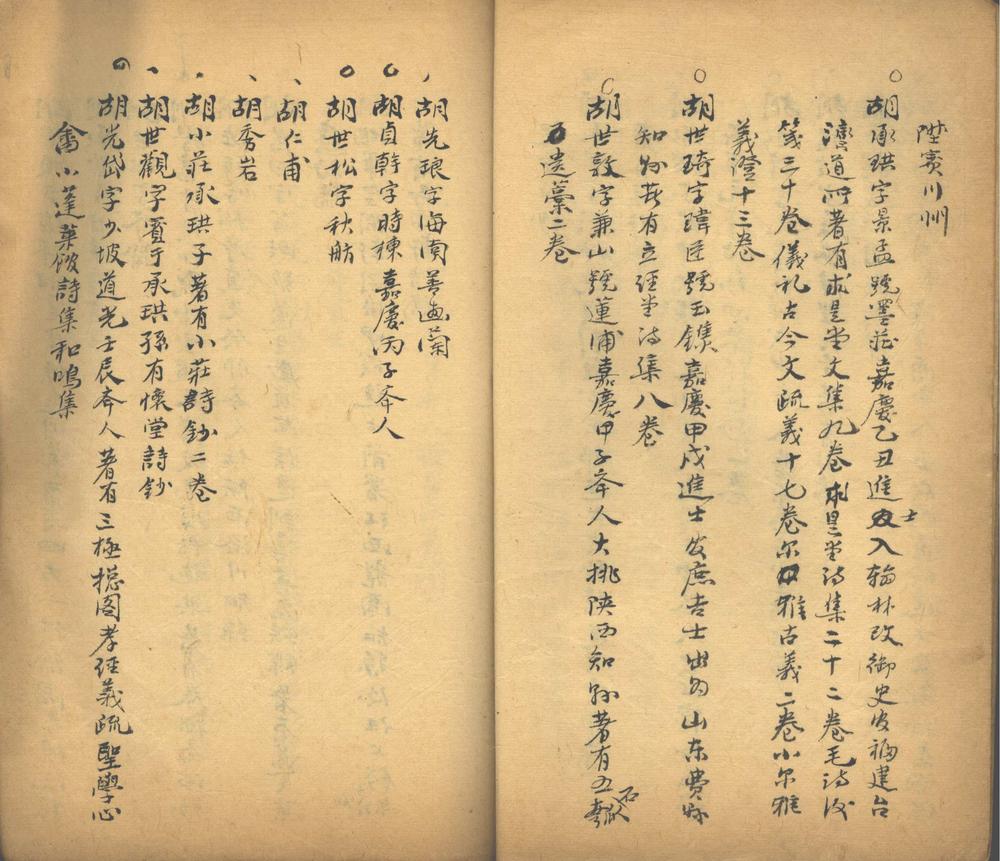 陞賓川州
○胡承珙字景孟號墨莊嘉慶乙丑進士入翰林改御史官福建台
灣道所著有求是堂文集九卷求是堂诗集二十二卷毛诗後
箋三十卷儀礼古今文疏義十七卷尔雅古義二卷小尔雅
義證十三卷
○胡世琦字瑋臣號玉鐫嘉慶甲戌進士官庶吉士出为山东费縣
知縣著有立經堂诗集八卷
○胡世敦字兼山號蓮浦嘉慶甲子举人大挑陕西知縣著有五石瓠
遺藁二卷
、胡先琅字海闻善画蘭
○胡貞幹字時棟嘉慶丙子举人
○胡世松字秋舫
、胡仁甫
、胡秀岩
、胡小莊承珙子著有小莊詩鈔二卷
、胡世觀字賓于承珙孫有懷堂詩鈔
○胡光岱字少坡道光壬辰举人著有三極樓图孝经義疏聖學心
小蓬萊館詩集和鳴集